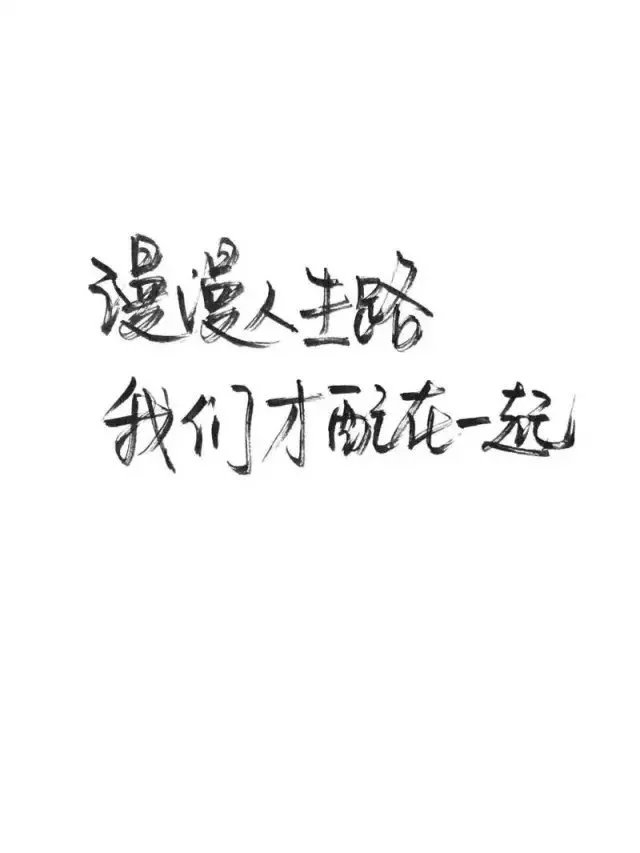 漫漫人生路
我们才配在一起